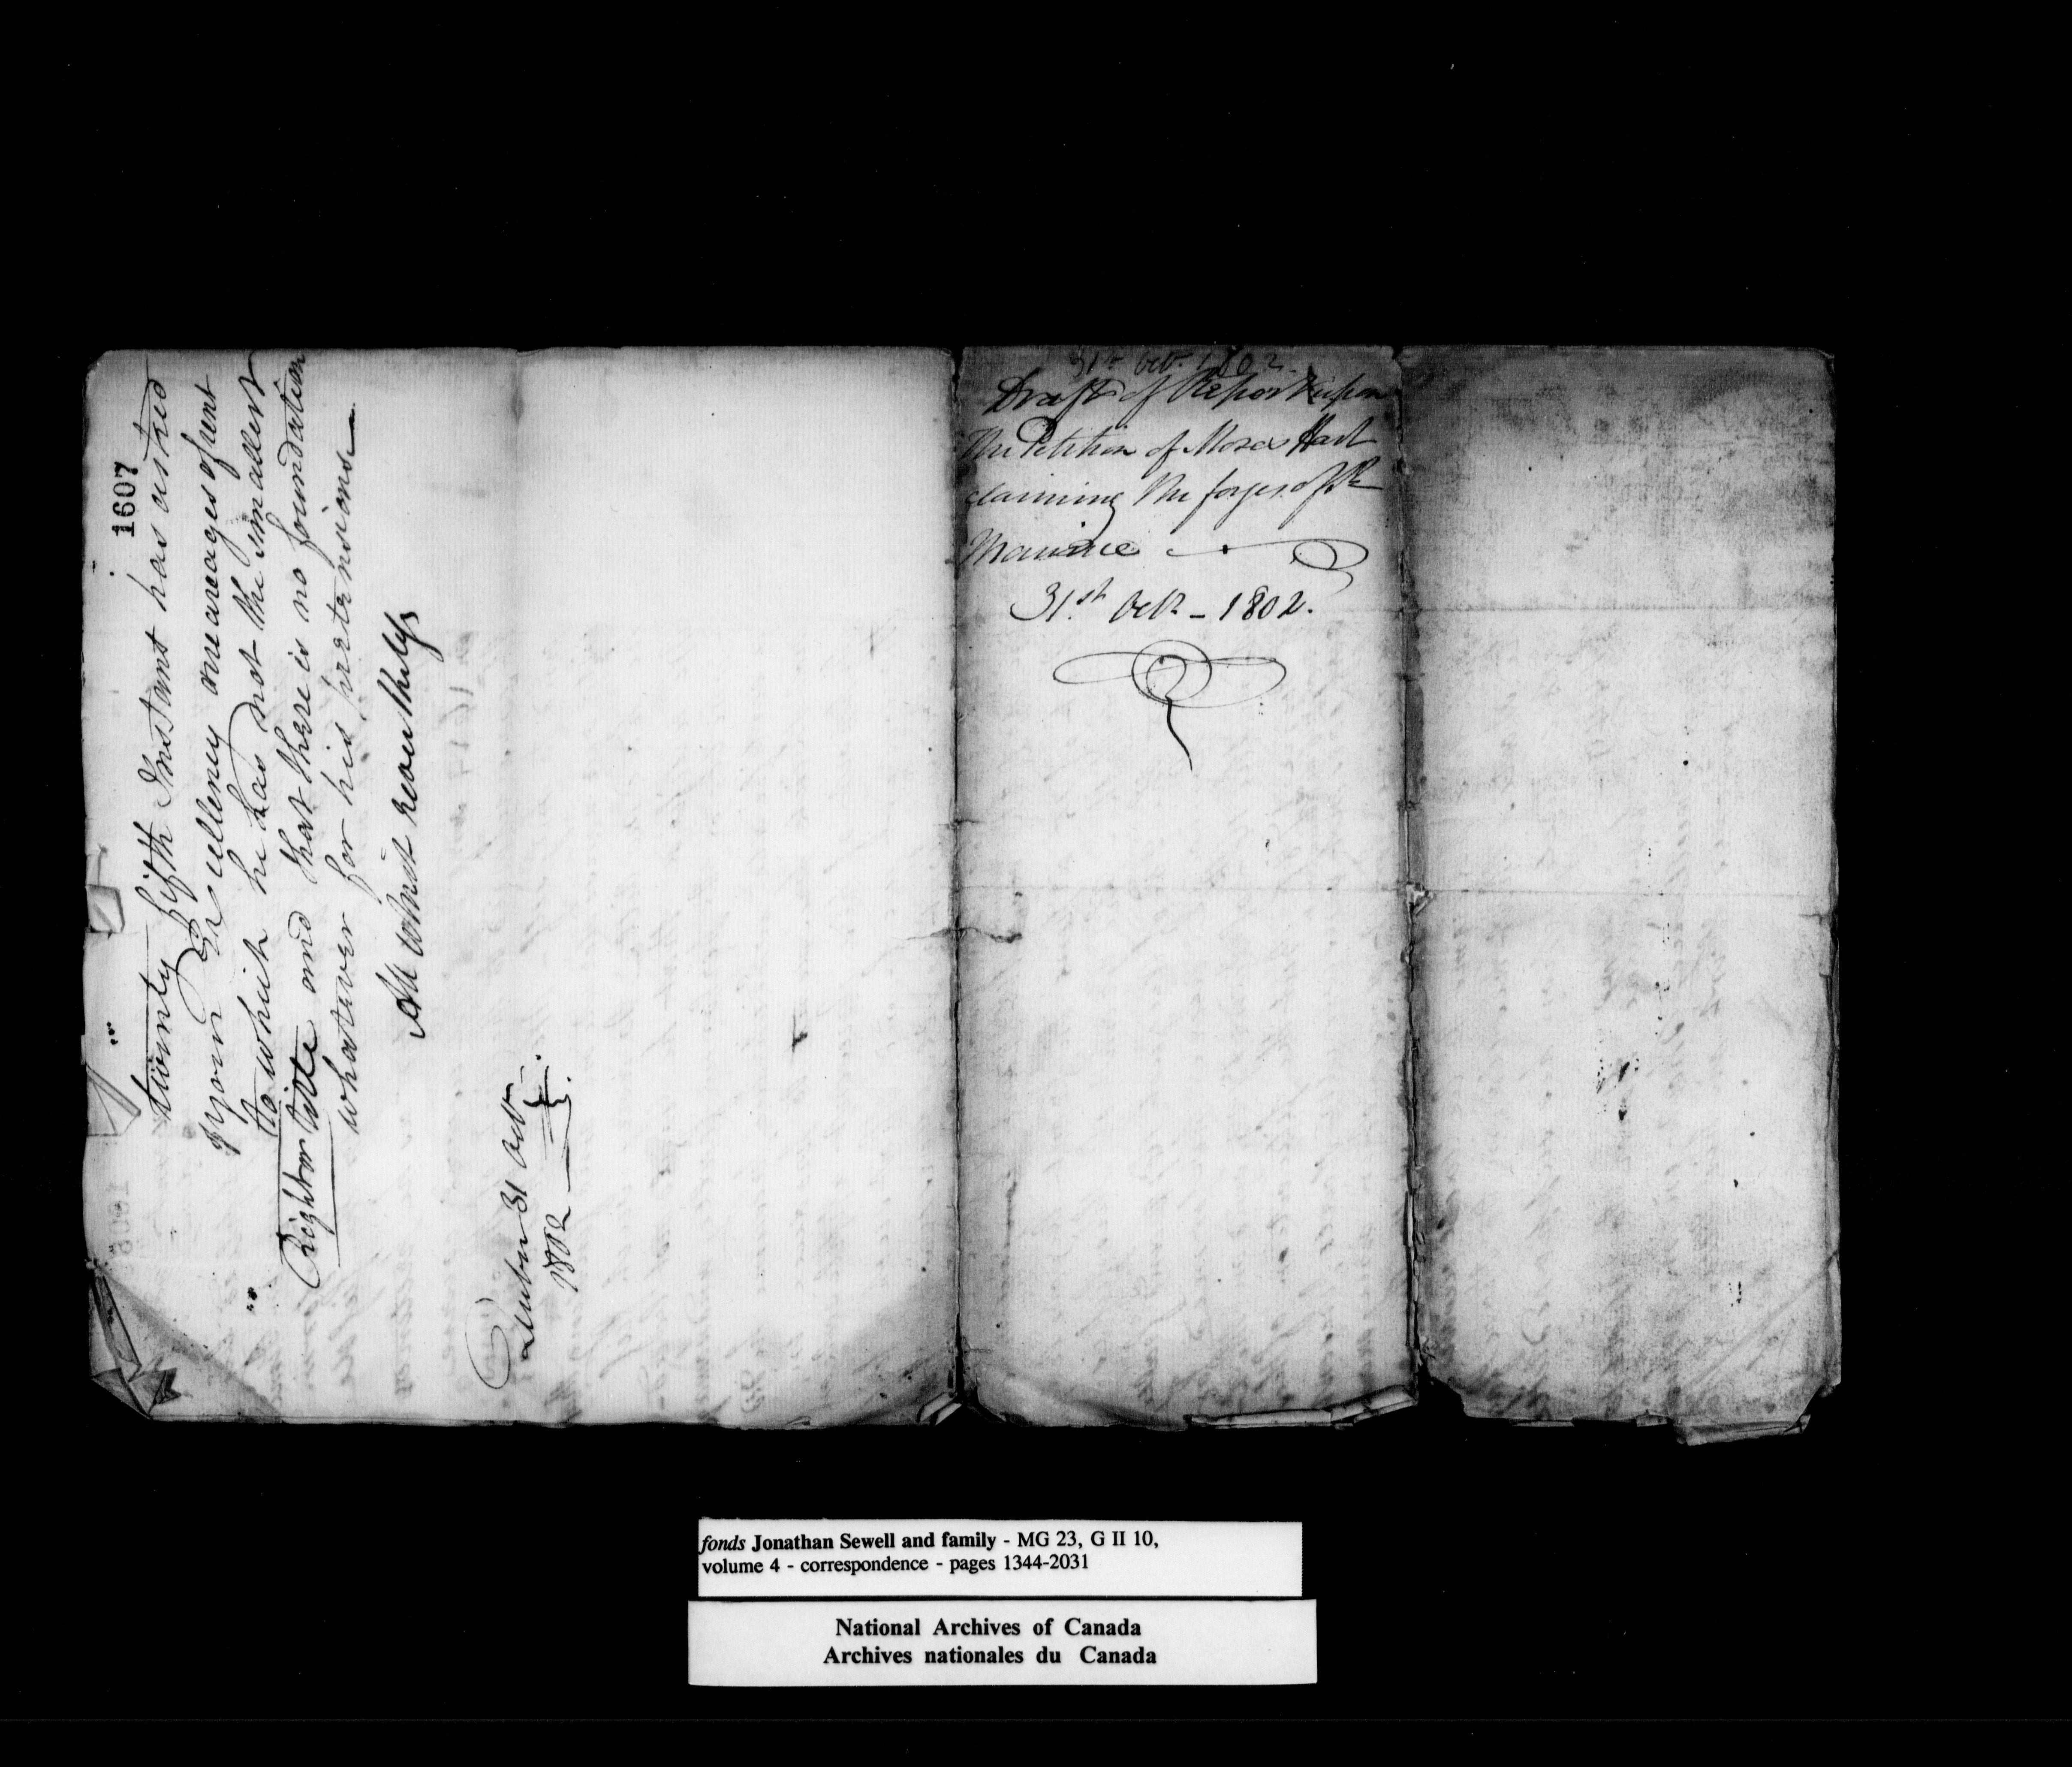 1607
twenty fifth Instant has asked
of your Excellency arrearages of rent
to which he has not the smallest
Right or title and that there is no foundation
whatever for his pretensions —
All which respectfully
Quebec 31 Octr
1802
31st Octr 1802.
Draft of Report upon
the Petition of Moses Hart
claiming the forges of St
Maurice
31st Octr - 1802.
fonds Jonathan Sewell and family - MG 23, G II 10,
volume 4 - correspondence - pages 1344-2031
National Archives of Canada
Archives nationales du Canada